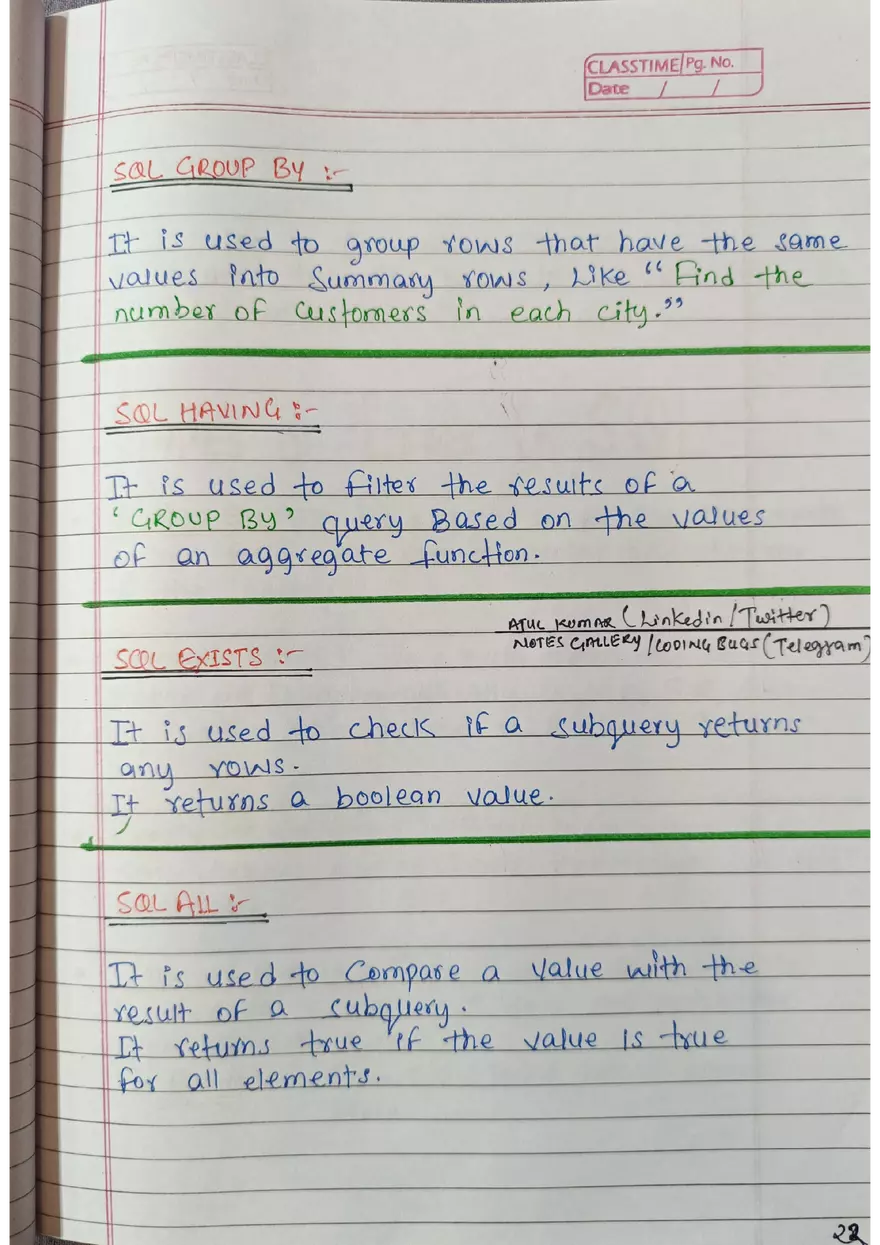 CLASSTIME Pg. No.
Date / /
SQL GROUP BY :-
It is used to group rows that have the same
values into Summary rows, Like “ Find the
number of customers in each city.”
SQL HAVING :-
It is used to filter the results of a
‘ GROUP BY’ query Based on the values
of an aggregate function.
ATUL KUMAR (Linkedin / Twitter)
NOTES GALLERY / CODING BUGS (Telegram)
SQL EXISTS :-
It is used to check if a subquery returns
any rows.
It returns a boolean value.
SQL ALL :-
It is used to Compare a value with the
result of a subquery.
It returns true if the value is true
for all elements.